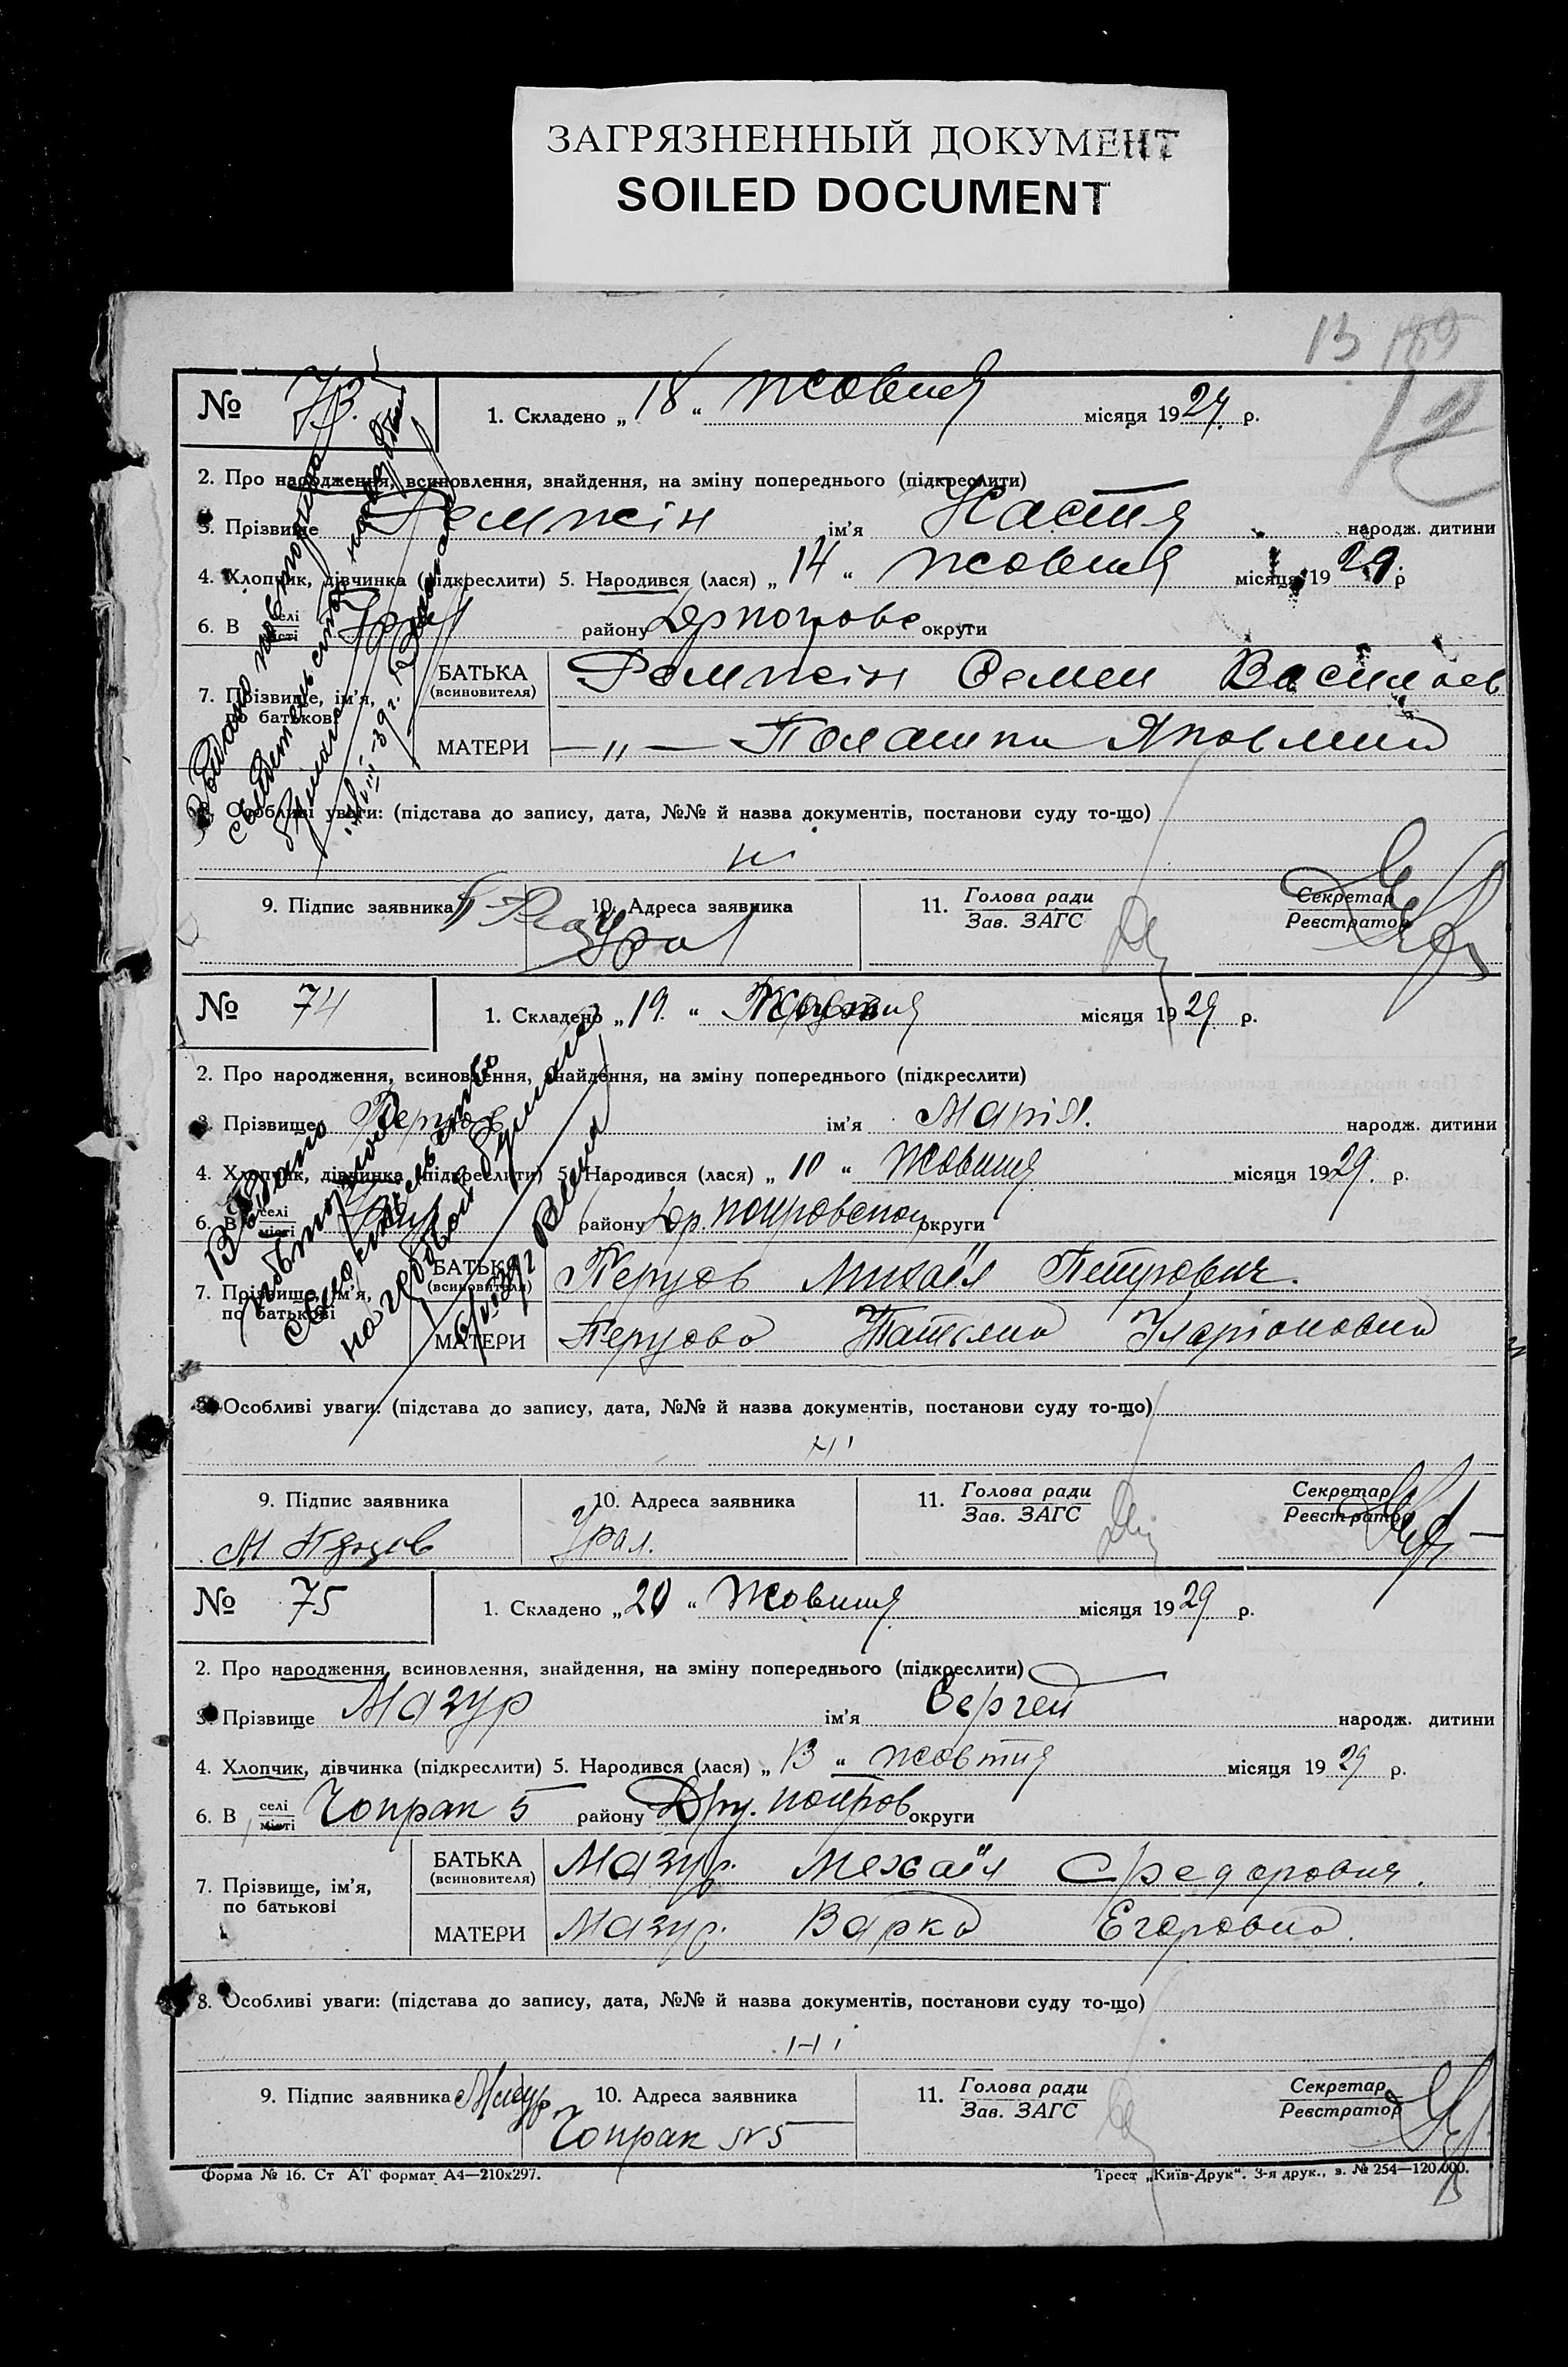 ЗАГРЯЗНЕННЫЙ ДОКУМЕНТ
SOILED DOCUMENT
13 189
№ 73. 1. Складено „ 18 “ Жовтня місяця 1929. р.
2. Про народження, всиновлення, знайдення, на зміну попереднього (підкреслити)
3. Прізвище ім'я Настя народж. дитини
4. Хлопчик, дівчинка (підкреслити) 5. Народився (лася) „ 14 “ жовтня місяця 1929. р
6. В селі місті Урал району округи
7. Прізвище, ім'я, по батькові
БАТЬКА (всиновителя) Семен Васильев
МАТЕРИ — „ — Яковлевна
8. Особливі уваги: (підстава до запису, дата, №№ й назва документів, постанови суду то-що)
ні
9. Підпис заявника 10. Адреса заявника 11. Голова ради Зав. ЗАГС Секретар Реєстратор
Урал
Выдано повторное
свидетельство на гербовой
бумаге
№ 74 1. Складено „ 19. “ Жовтня місяця 1929 р.
2. Про народження, всиновлення, знайдення, на зміну попереднього (підкреслити)
3. Прізвище Перцов ім'я Марія. народж. дитини
4. Хлопчик, дівчинка (підкреслити) 5. Народився (лася) „ 10 “ Жовтня місяця 1929. р.
6. В селі місті Урал району Др. покровского округи
7. Прізвище, ім'я, по батькові
БАТЬКА (всиновителя) Перцов Михаїл Петрович.
МАТЕРИ Перцова Татьяна Іларіоновна
8. Особливі уваги: (підстава до запису, дата, №№ й назва документів, постанови суду то-що)
ні
9. Підпис заявника 10. Адреса заявника 11. Голова ради Зав. ЗАГС Секретар Реєстратор
М Перцов Урал.
Выдано
повторное
свидетельство
на гербовой бумаге
№ 75 1. Складено „ 20 “ Жовтня місяця 1929 р.
2. Про народження, всиновлення, знайдення, на зміну попереднього (підкреслити)
3. Прізвище Мазур ім'я Сергей народж. дитини
4. Хлопчик, дівчинка (підкреслити) 5. Народився (лася) „ 13 “ жовтня місяця 1929 р.
6. В селі місті Чокрак 5 району Дру. покров округи
7. Прізвище, ім'я, по батькові
БАТЬКА (всиновителя) Мазур. Мехаїл Федорович.
МАТЕРИ Мазур. Варка Егоровна.
8. Особливі уваги: (підстава до запису, дата, №№ й назва документів, постанови суду то-що)
ні
9. Підпис заявника Мазур 10. Адреса заявника 11. Голова ради Зав. ЗАГС Секретар Реєстратор
Чокрак №5
Форма № 16. Ст АТ формат А4—210х297. Трест „Київ-Друк“. 3-я друк., з. № 254—120.000.